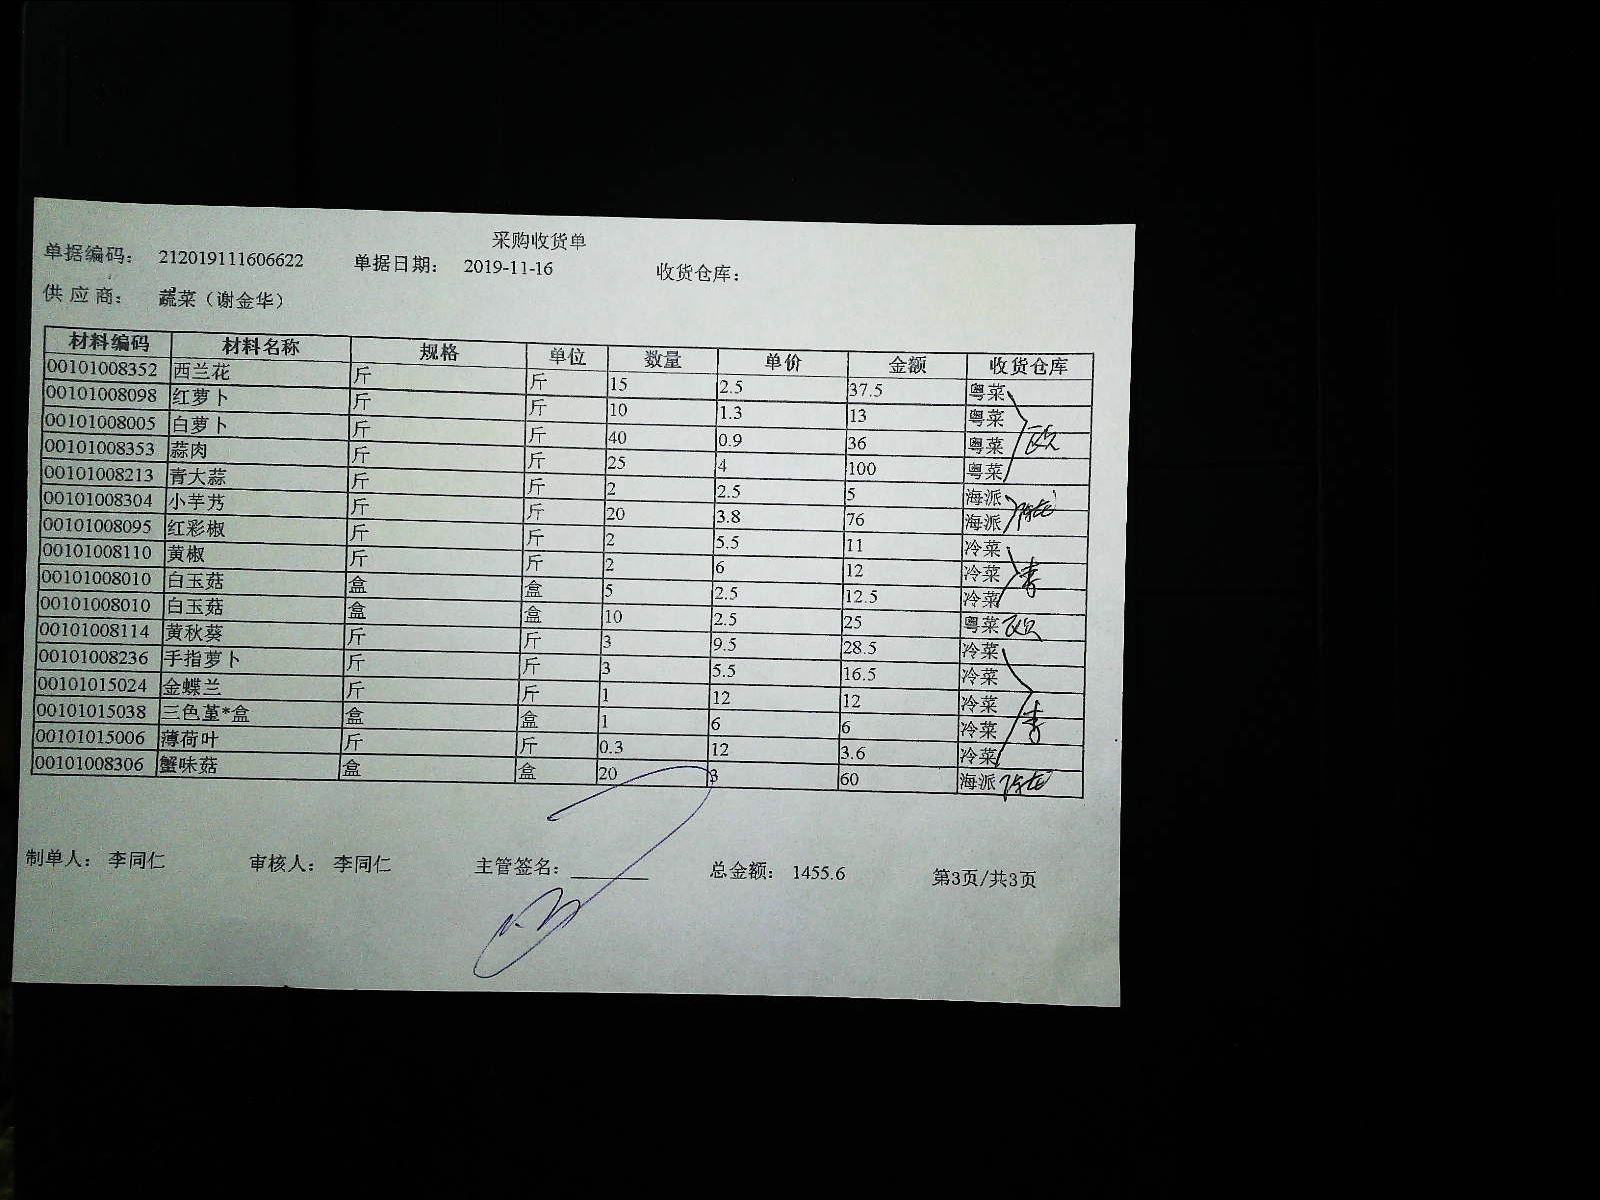 采购收货单
单据编码： 212019111606622 单据日期： 2019-11-16 收货仓库：
供应商： 蔬菜（谢金华）
材料编码 材料名称 规格 单位 数量 单价 金额 收货仓库
00101008352 西兰花 斤 斤 15 2.5 37.5 粤菜
00101008098 红萝卜 斤 斤 10 1.3 13 粤菜
00101008005 白萝卜 斤 斤 40 0.9 36 粤菜
00101008353 蒜肉 斤 斤 25 4 100 粤菜
00101008213 青大蒜 斤 斤 2 2.5 5 海派
00101008304 小芋艿 斤 斤 20 3.8 76 海派
00101008095 红彩椒 斤 斤 2 5.5 11 冷菜
00101008110 黄椒 斤 斤 2 6 12 冷菜
00101008010 白玉菇 盒 盒 5 2.5 12.5 冷菜
00101008010 白玉菇 盒 盒 10 2.5 25 粤菜
00101008114 黄秋葵 斤 斤 3 9.5 28.5 冷菜
00101008236 手指萝卜 斤 斤 3 5.5 16.5 冷菜
00101015024 金蝶兰 斤 斤 1 12 12 冷菜
00101015038 三色堇*盒 盒 盒 1 6 6 冷菜
00101015006 薄荷叶 斤 斤 0.3 12 3.6 冷菜
00101008306 蟹味菇 盒 盒 20 3 60 海派
制单人： 李同仁 审核人： 李同仁 主管签名： 总金额： 1455.6 第3页/共3页